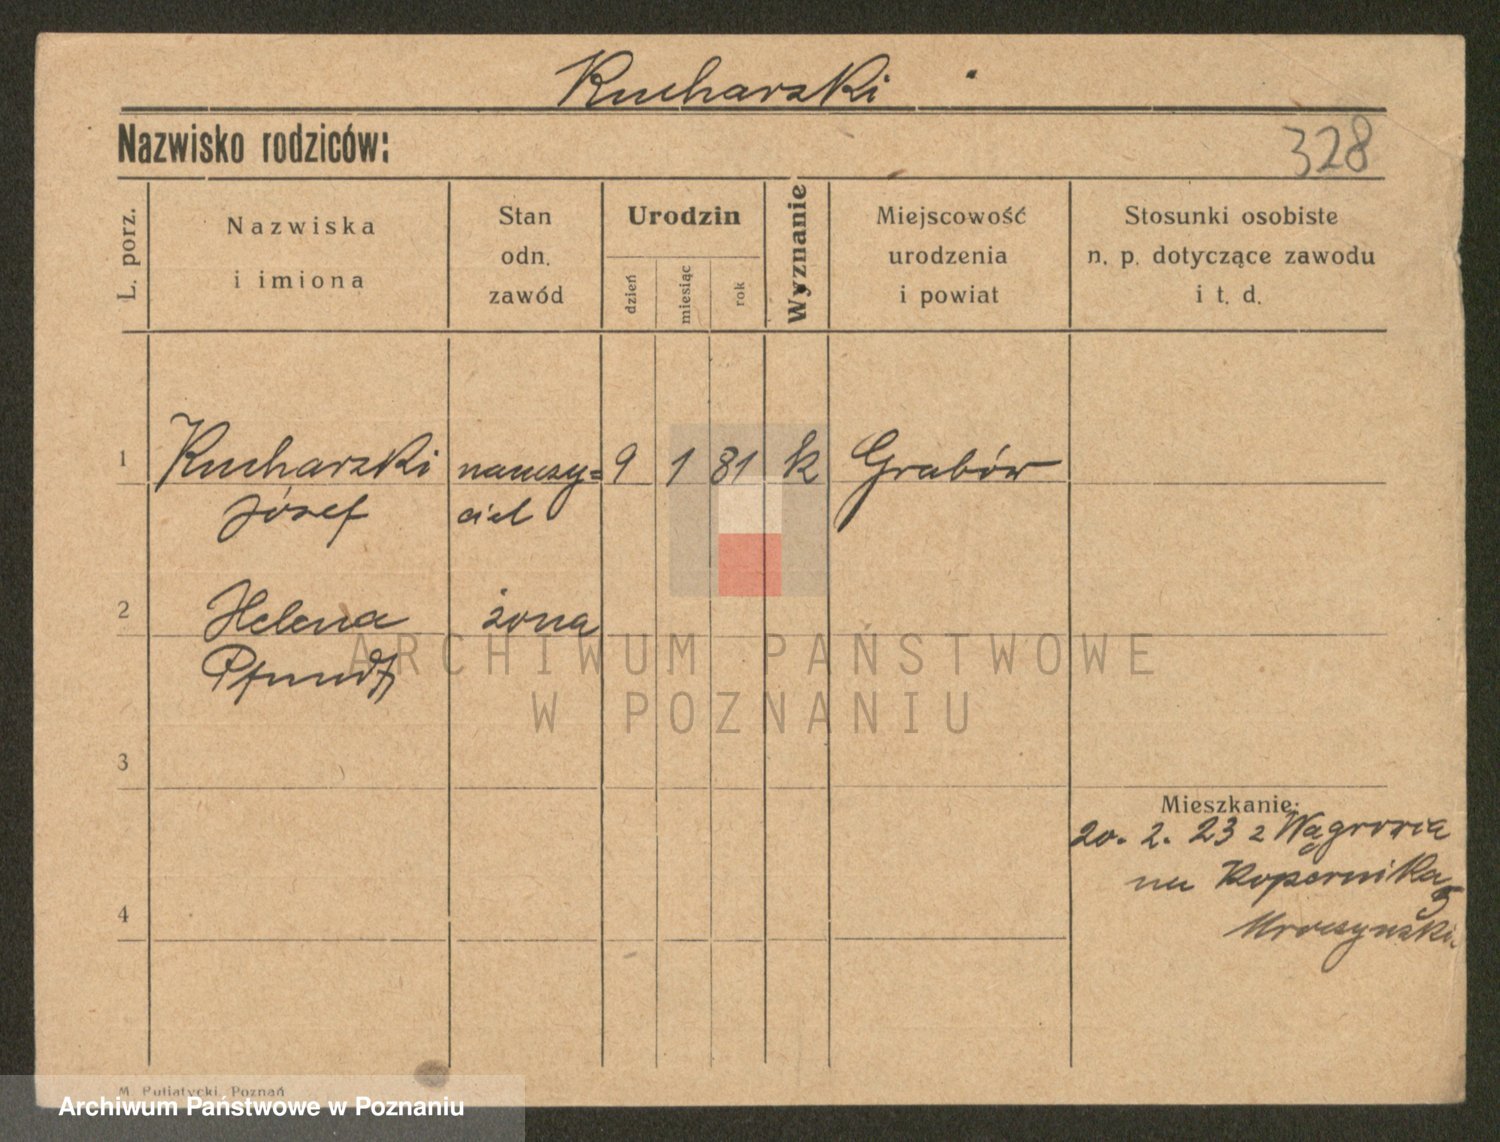 Kucharski
Nazwisko rodziców:
328
L. porz.
Nazwiska
i imiona
Stan
odn.
zawód
Urodzin
dzień
miesiąc
rok
Wyznanie
Miejscowość
urodzenia
i powiat
Stosunki osobiste
n. p. dotyczące zawodu
i t. d.
1
Kucharski
Józef
nauczy=
ciel
9
1
81
k
Grabów
2
Helena
żona
ARCHIWUM PAŃSTWOWE
W POZNANIU
3
Mieszkanie:
20. 2. 23 z
na Kopernika
5
4
M. Putiatycki, Poznań
Archiwum Państwowe w Poznaniu